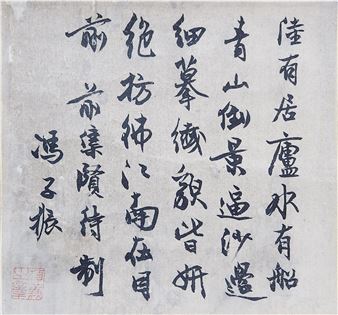 陸有居廬水有船
青山倒景逼沙邊
細摹纖貌皆妍
絶彷彿江南在目
前 前集賢待制
馮子振